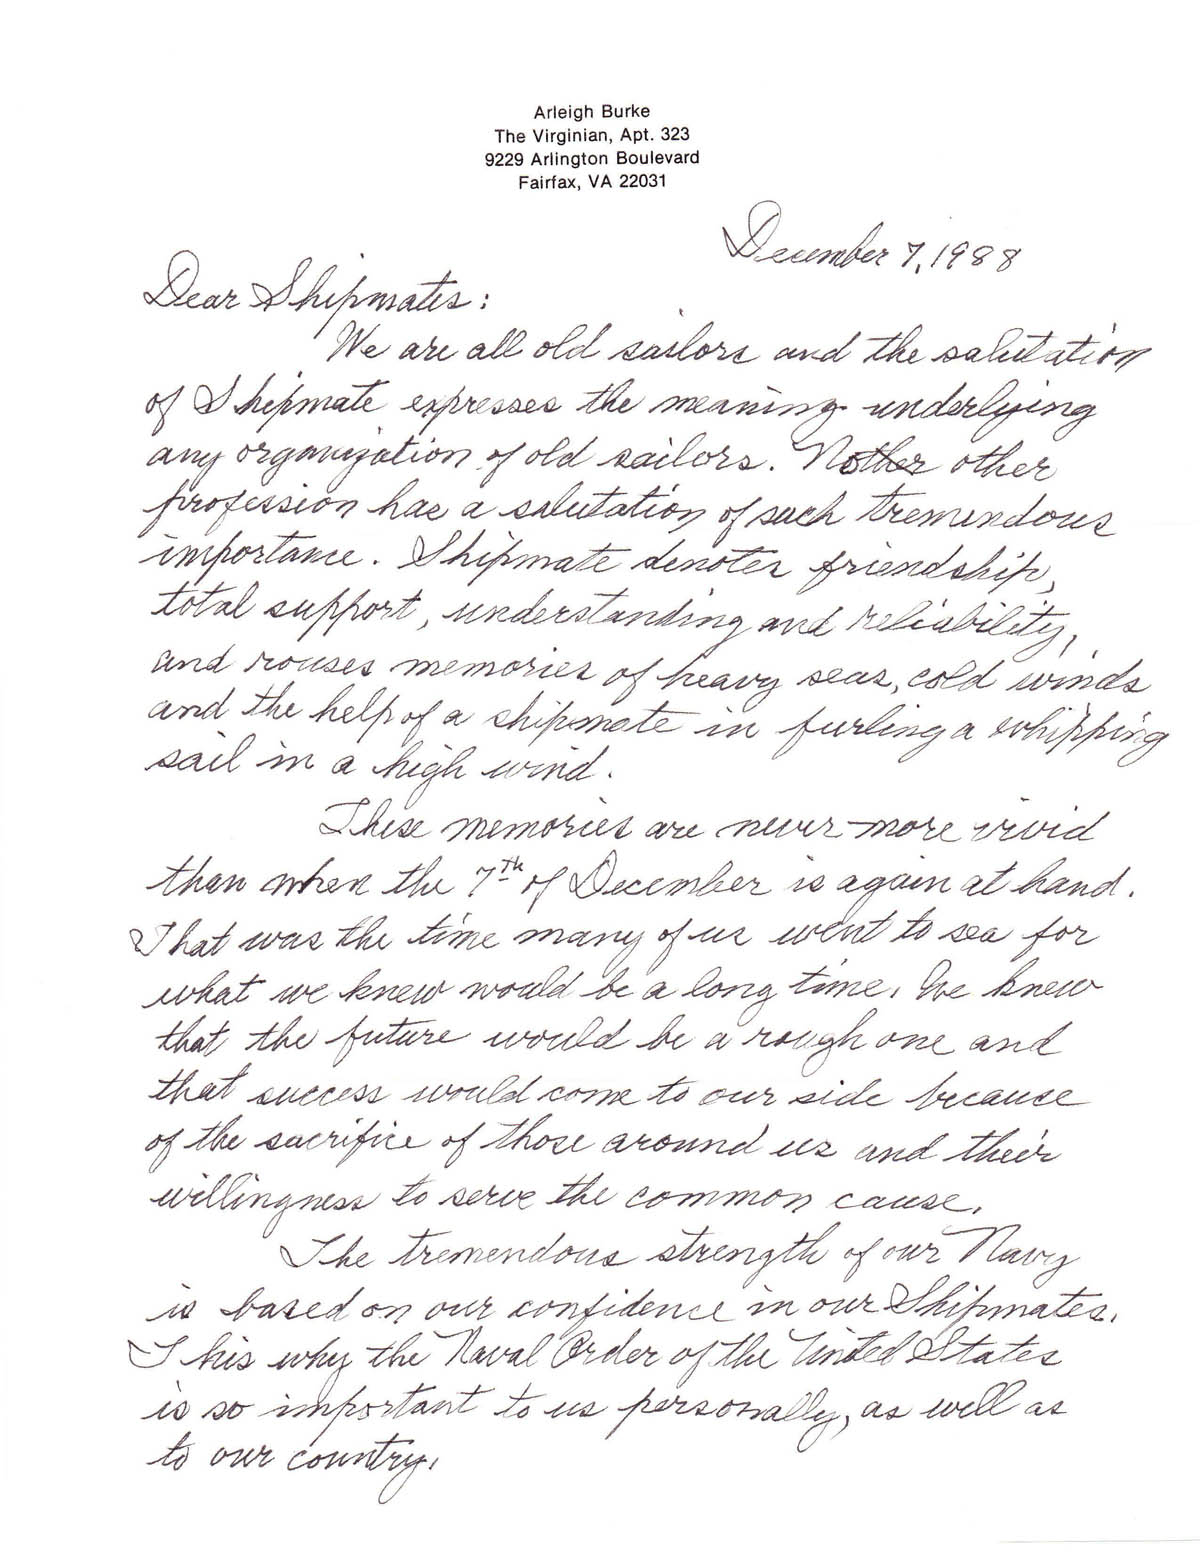 Arleigh Burke
The Virginian, Apt. 323
9229 Arlington Boulevard
Fairfax, VA 22031
December 7, 1988
Dear Shipmates:
We are all old sailors and the salutation
of Shipmate expresses the meaning underlying
any organization of old sailors. Nother other
profession has a salutation of such tremendous
importance. Shipmate denotes friendship,
total support, understanding and reliability,
and rouses memories of heavy seas, cold winds
and the help of a shipmate in furling a whipping
sail in a high wind.
These memories are never more vivid
than when the 7th of December is again at hand.
That was the time many of us went to sea for
what we knew would be a long time. We knew
that the future would be a rough one and
that success would come to our side because
of the sacrifice of those around us and their
willingness to serve the common cause.
The tremendous strength of our Navy
is based on our confidence in our Shipmates.
This why the Naval Order of the United States
is so important to us personally, as well as
to our country.